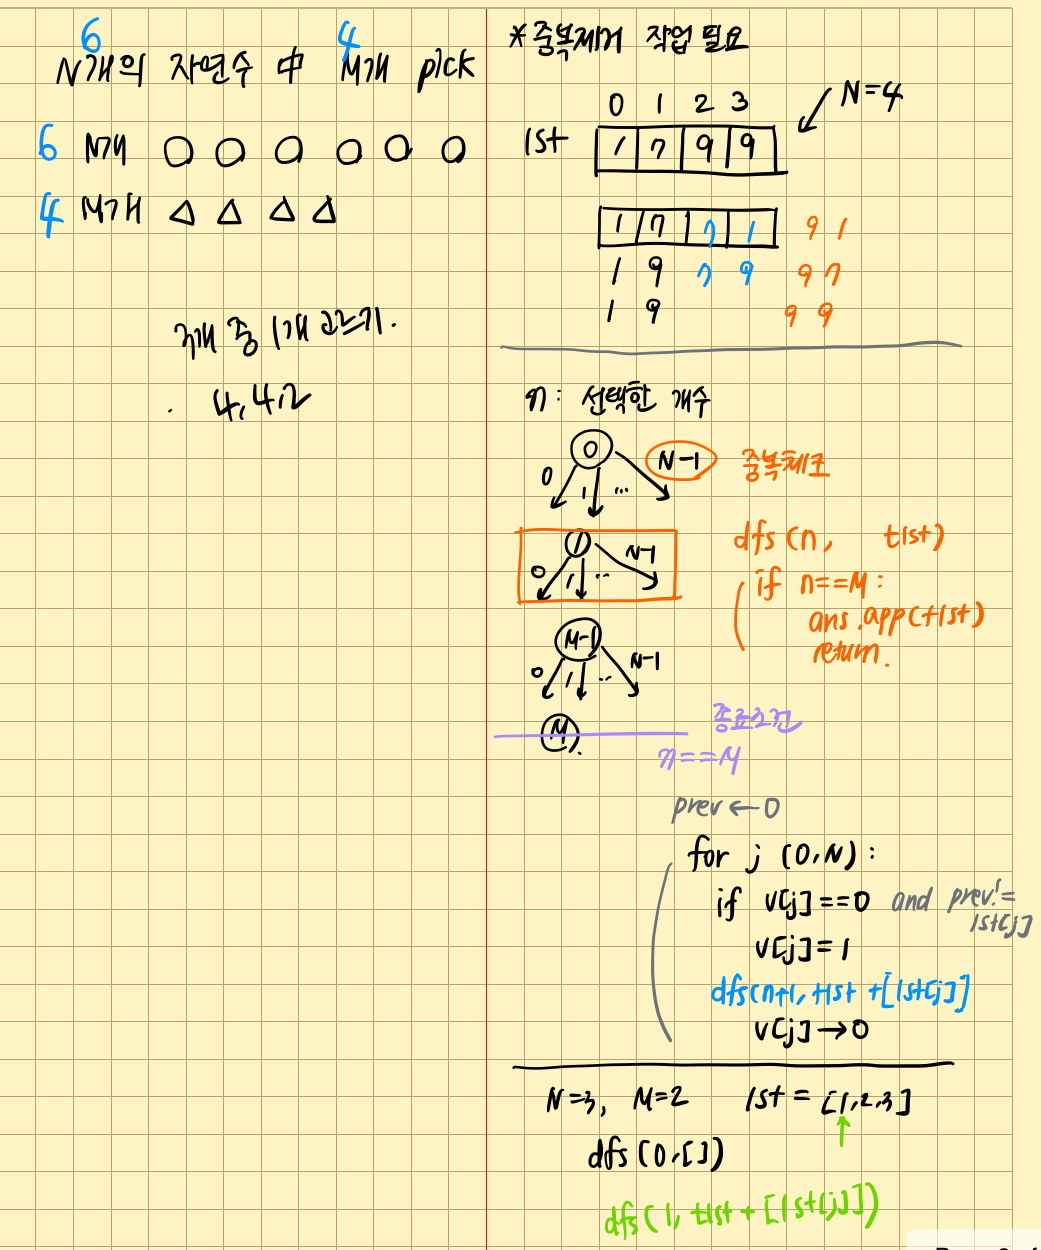 6 4
N개의 자연수 中 M개 pick
6 N개
4 M개
3개 중 1개 고르기.
4,4,2
*중복제거 작업 필요
0 1 2 3
N=4
lst 1 7 9 9
1 7 7 1 9 1
1 9 7 9 9 7
1 9 9 9
n: 선택한 개수
0
0 1 ... N-1 중복체크
1
0 1 ... N-1
dfs(n, tlst)
if n==M:
ans.app(tlst)
return.
M-1
0 1 ... N-1
M.
종료조건
n==M
prev ← 0
for j (0,N):
if v[j]==0 and prev!=
lst[j]
v[j]=1
dfs(n+1, tlst+[lst[j]]
v[j]→0
N=3, M=2 lst = [1,2,3]
dfs(0,[])
dfs(1, tlst+[lst[j]])